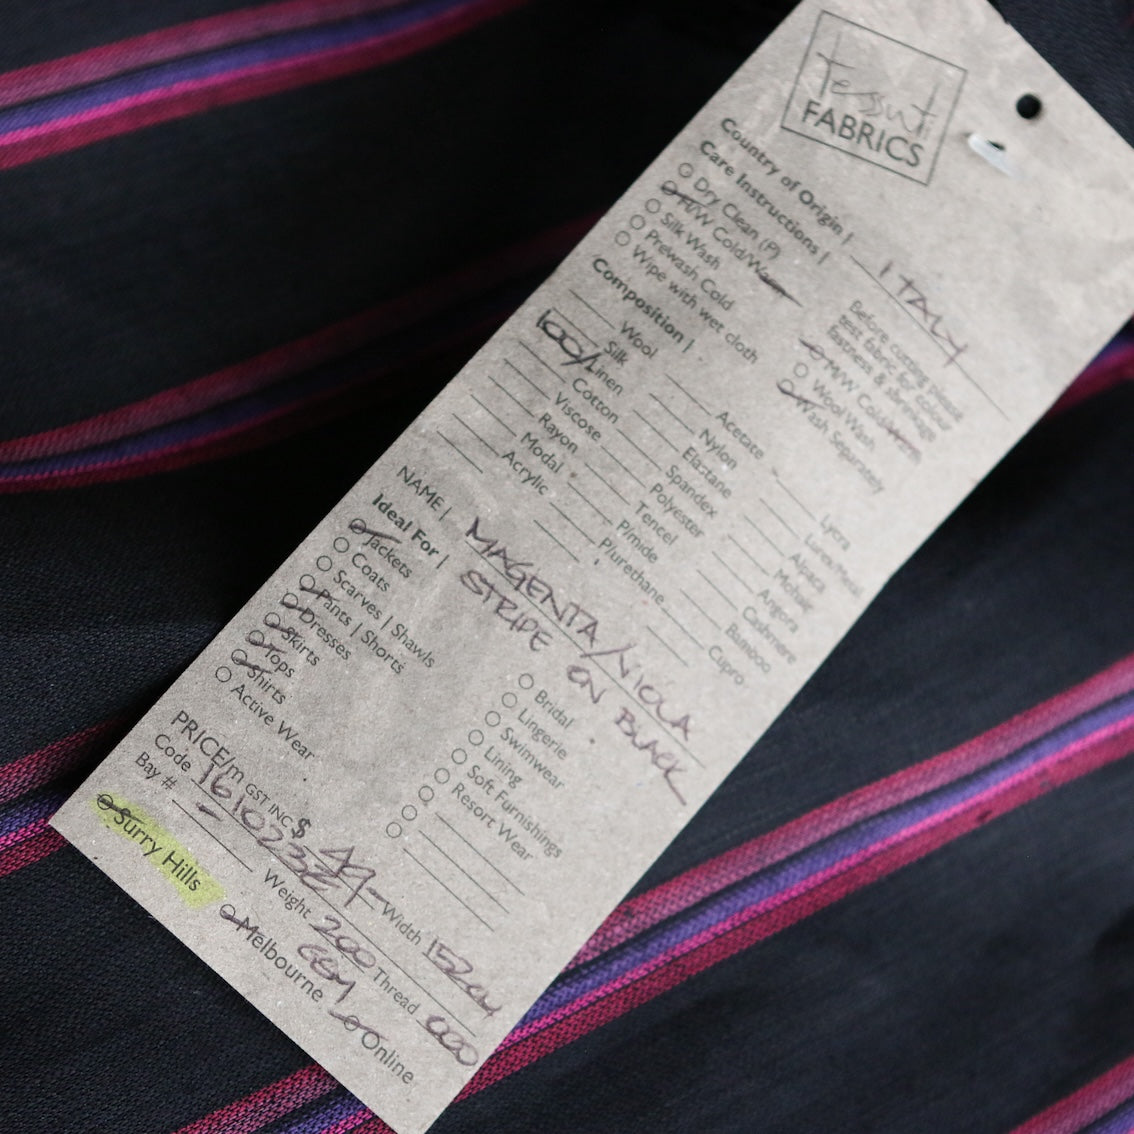 Tessuti
FABRICS
Country of Origin | ITALY
Care Instructions |
Dry Clean (P)
H/W Cold/Warm
Silk Wash
Prewash Cold
Wipe with wet cloth
Before cutting please
test fabric for colour
fastness & shrinkage
M/W Cold/Warm
Wool Wash
Wash Separately
Composition |
Wool
Silk
100% Linen
Cotton
Viscose
Rayon
Modal
Acrylic
Acetate
Nylon
Elastane
Spandex
Polyester
Tencel
P/mide
P/urethane
Lycra
Lurex/Metal
Alpaca
Mohair
Angora
Cashmere
Bamboo
Cupro
NAME | MAGENTA/VIOLA
STRIPE ON BLACK
Ideal For |
Jackets
Coats
Scarves | Shawls
Pants | Shorts
Dresses
Skirts
Tops
Shirts
Active Wear
Bridal
Lingerie
Swimwear
Lining
Soft Furnishings
Resort Wear
PRICE/m GST INC $ 44- Width 152cm
Code Weight 200 GSM Thread 000
Bay # -
Surry Hills Melbourne Online